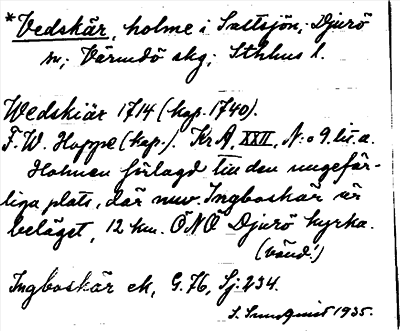 *Vedskär, holme i Saltsjön; Djurö
sn; Värmdö skg; Sthlms l.
Wedskiär 1714 (kop. 1740).
F. W. Hoppe (kop.). Kr A, XXII, N:o 9. lit. a.
Holmen förlagd till den ungefär-
liga plats, där nuv. Ingboskär är
beläget, 12 km. ÖNÖ Djurö kyrka.
(vänd!)
Ingboskär ek, G. 76, Sj. 234.
S. Sundquist 1935.